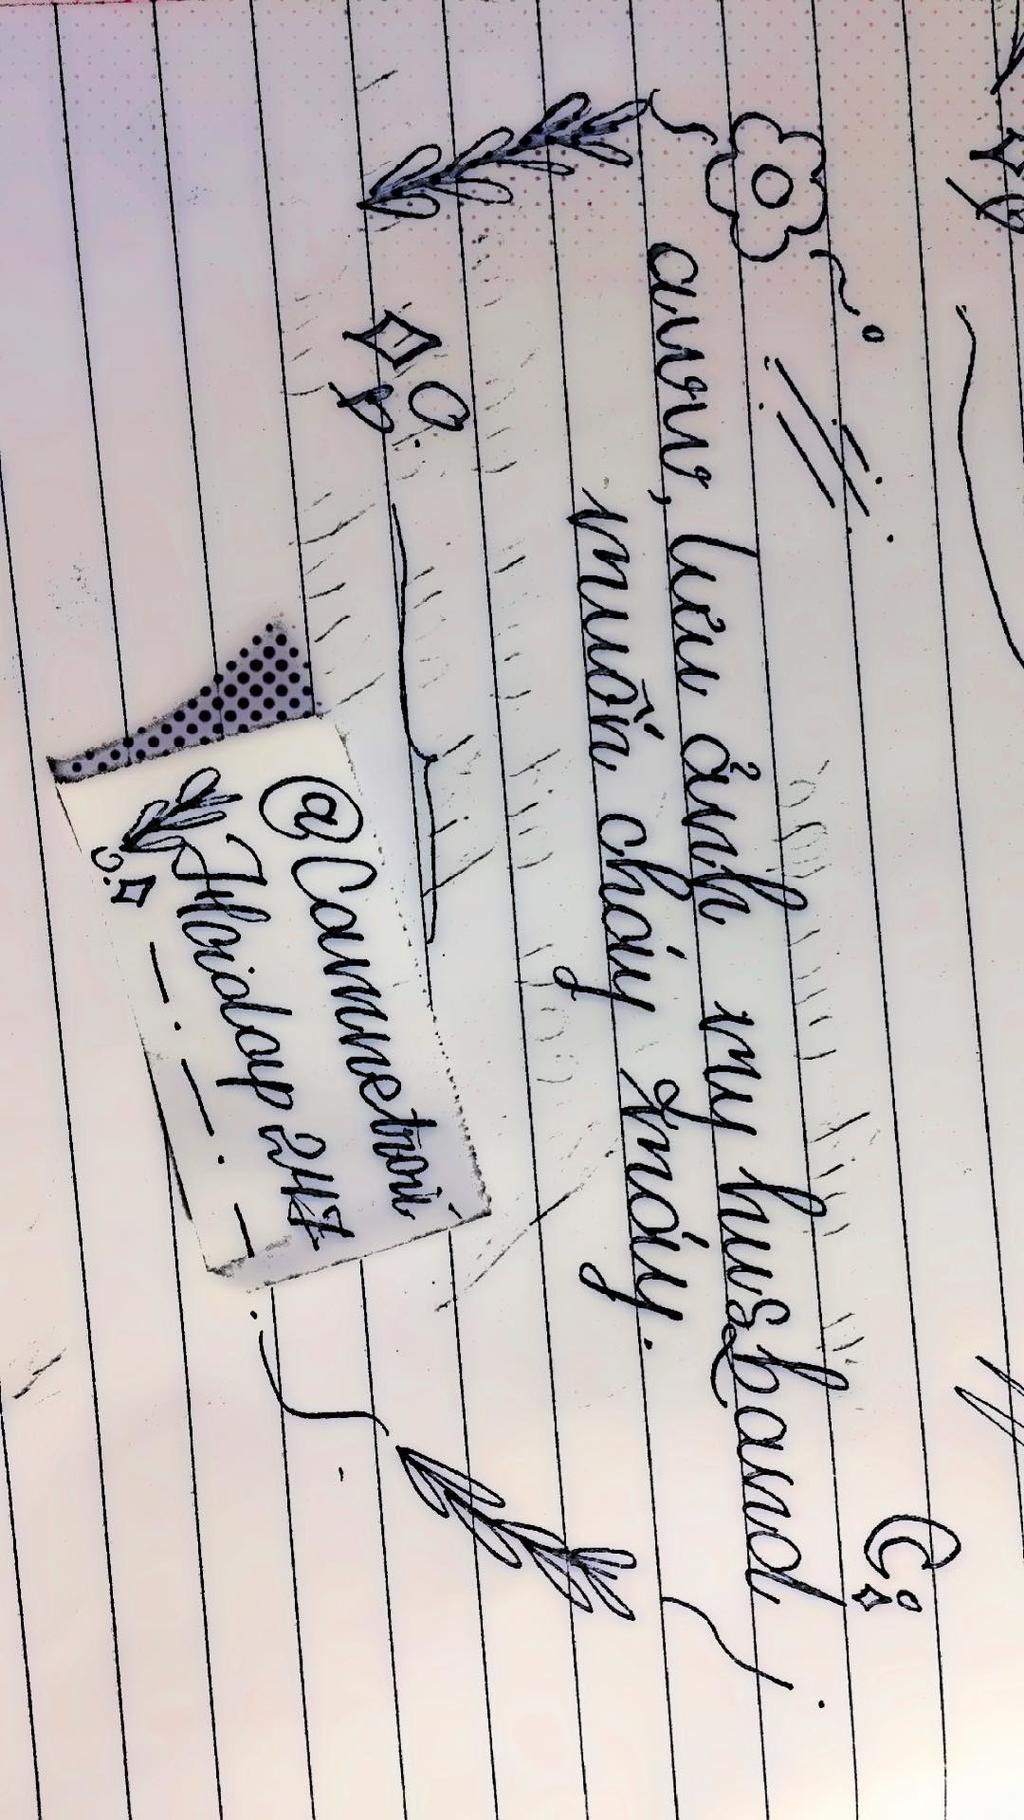 awn, lưu ảnh my husband
muốn cháy máy.
@Camnetroi
Hoidap 247